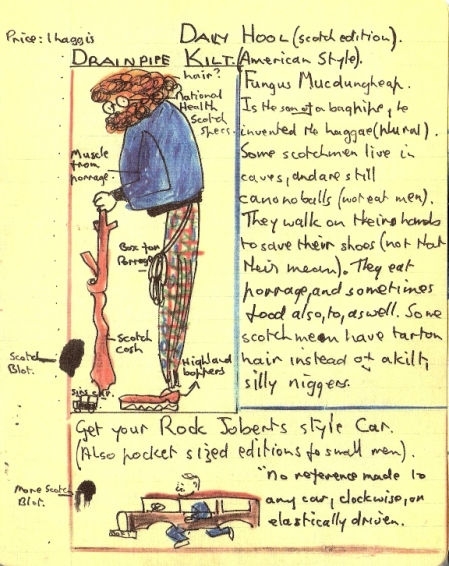 Price: 1 haggis
DAILY HOOL (scotch edition).
DRAINPIPE KILT. (American Style).
hair?
National
Health
Scotch
Specs.
Muscle
from
porrage.
Box for
Porrage
Scotch
Cosh
Highland
boppers
Scotch
Blot.
Fungus Mucdungheap.
Is the son of a bagpipe, he
invented the haggae (plural).
Some scotchmen live in
caves, and are still
canonoballs (not eat men).
They walk on their hands
to save their shoes (not that
their mean). They eat
porrage, and sometimes
food also, to, as well. Some
scotchmean have tartan
hair instead of a kilt,
silly niggers.
Get your Rock Joberts style Car.
(Also pocket sized editions for small men).
More Scotch
Blot.
"No reference made to
any car, clockwise, or
elastically driven.